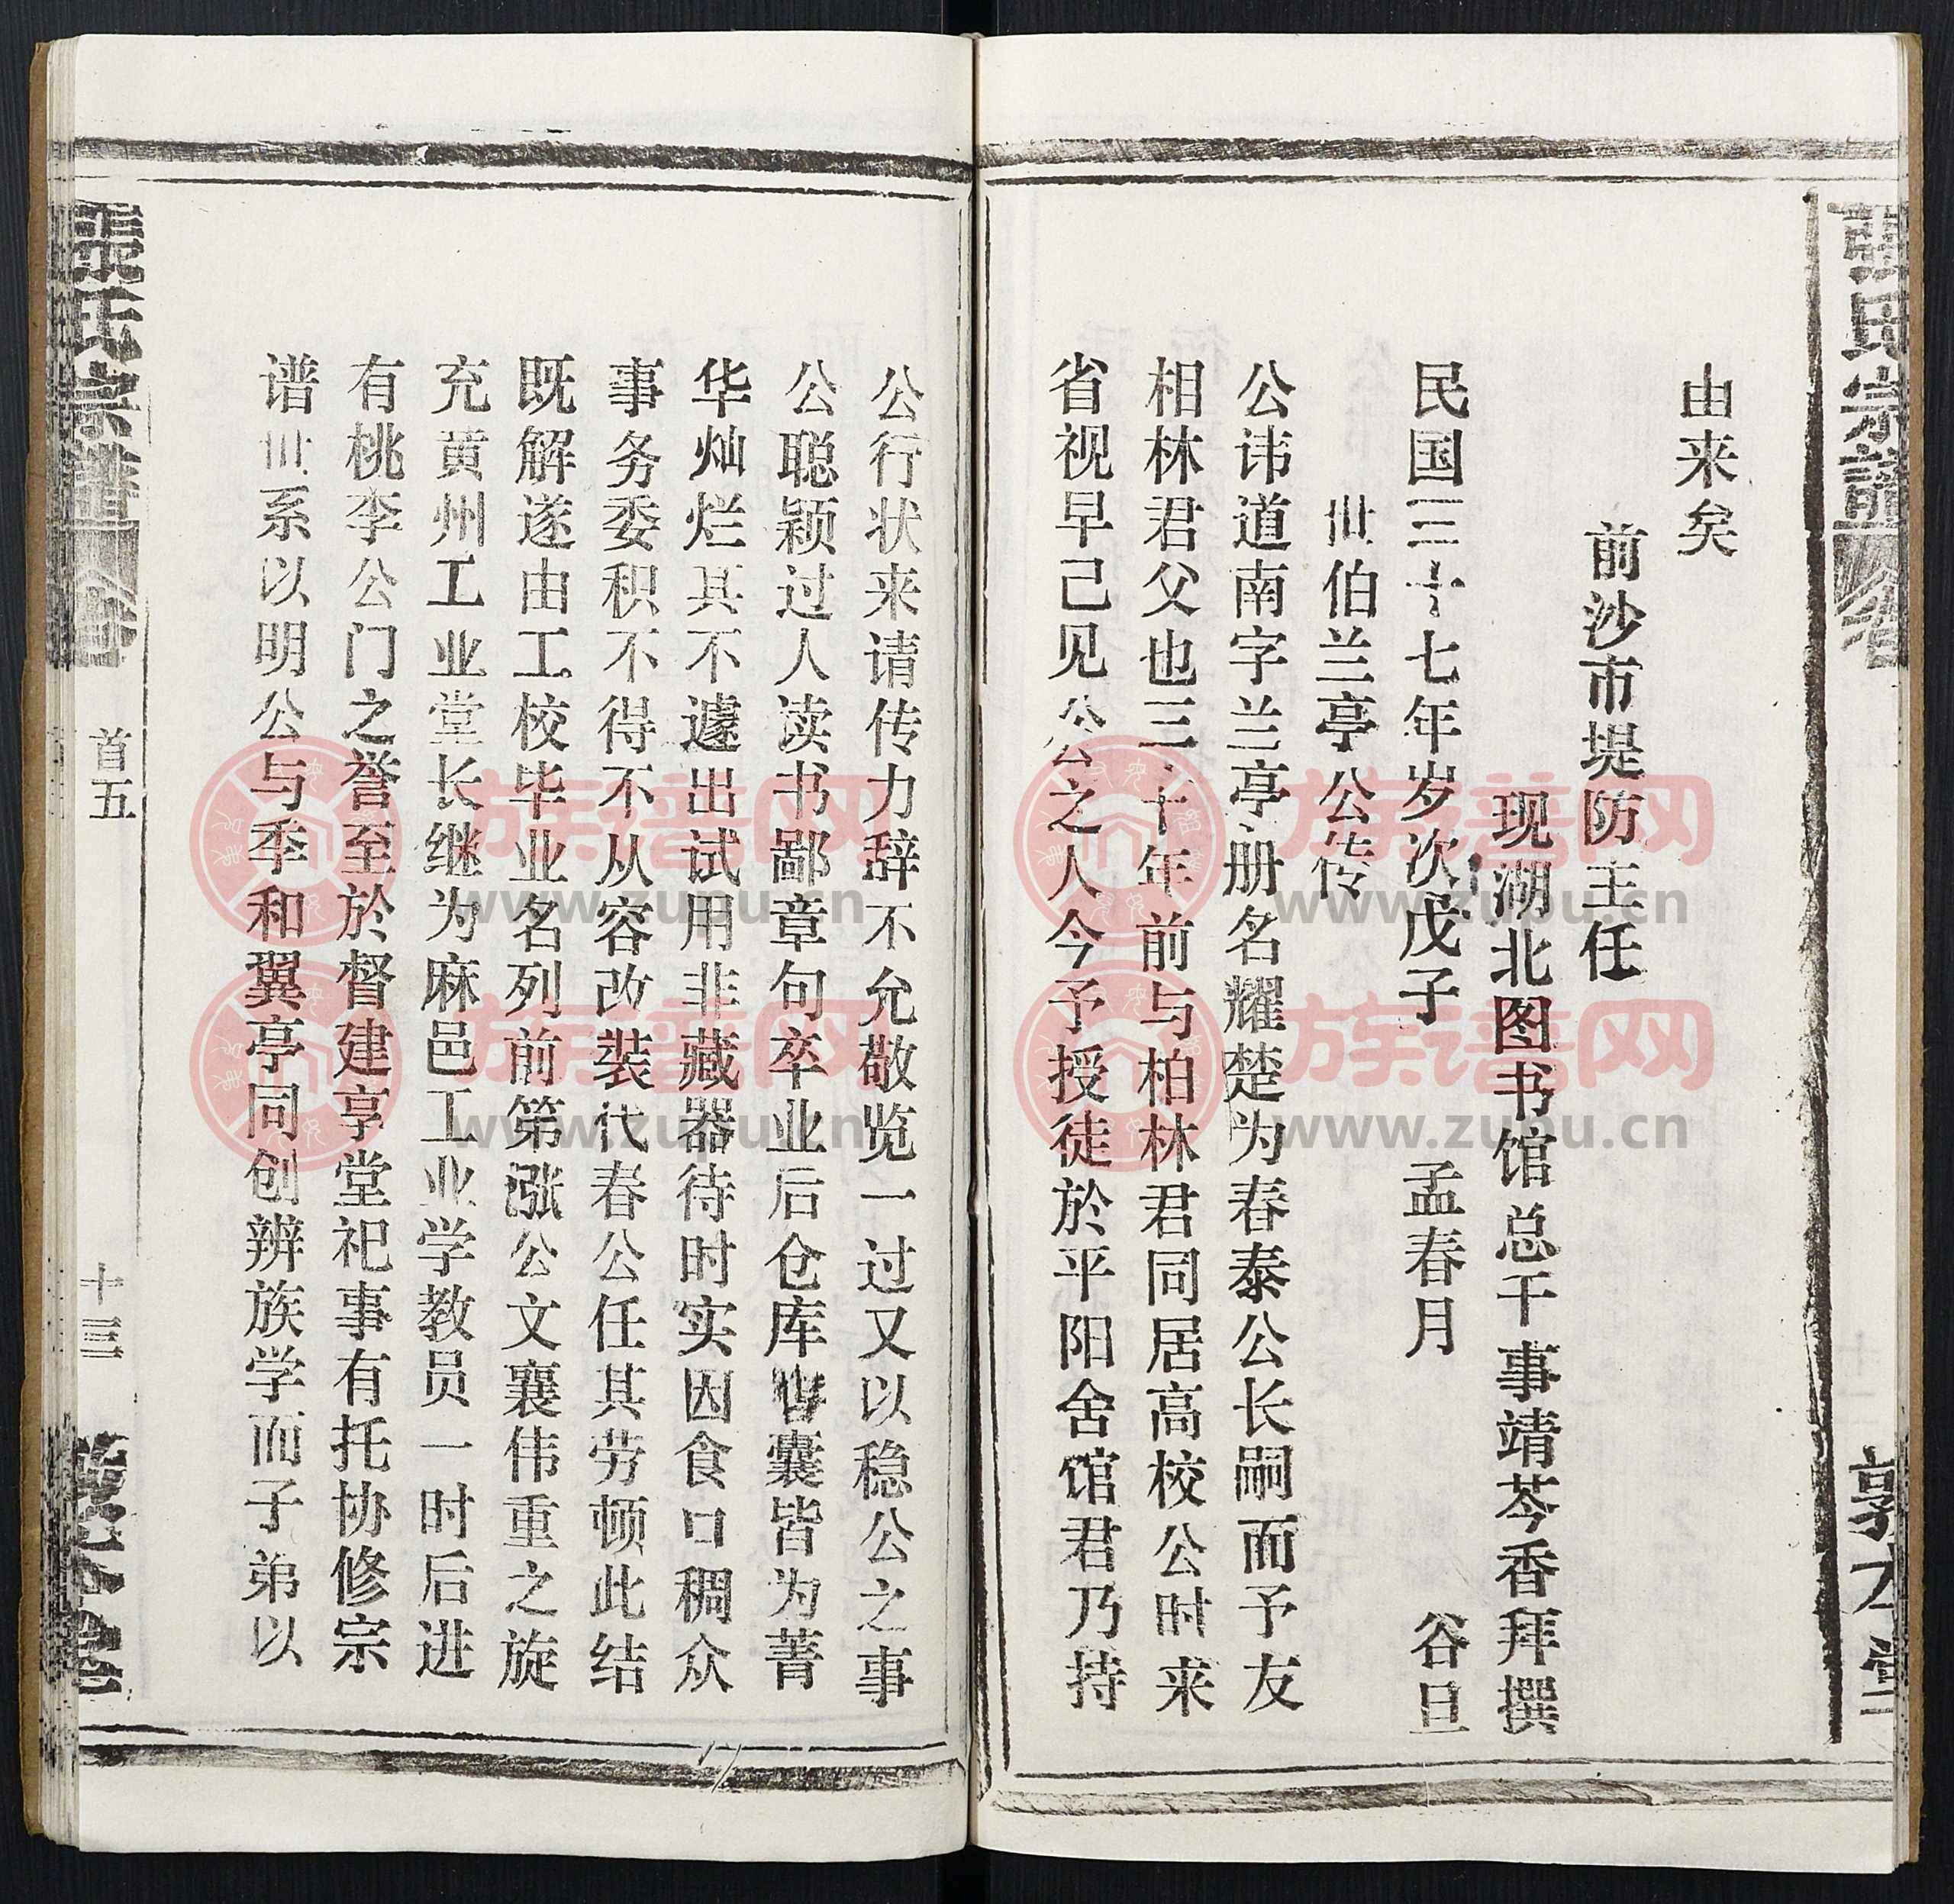 張氏宗譜
敦本堂
由来矣
前沙市堤防主任
现湖北图书馆总干事靖芩香拜撰
民国三十七年岁次戊子 孟春月 谷旦
世伯兰亭公传
公讳道南字兰亭册名耀楚为春泰公长嗣而予友
相林君父也三十年前与柏林君同居高校公时来
省视早已见公之人今予授徒於平阳舍馆君乃持
公行状来请传力辞不允敬览一过又以稳公之事
公聪颖过人读书鄙章句卒业后仓库书囊皆为菁
华灿烂其不遽出试用非藏器待时实因食口稠众
事务委积不得不从容改装代春公任其劳顿此结
既解遂由工校毕业名列前第涨公文襄伟重之旋
充黄州工业堂长继为麻邑工业学教员一时后进
有桃李公门之誉至於督建享堂祀事有托协修宗
谱世系以明公与季和翼亭同创辨族学而子弟以
張氏宗譜
首五
十三
族谱网
www.zupu.cn
族谱网
www.zupu.cn
族谱网
www.zupu.cn
族谱网
www.zupu.cn